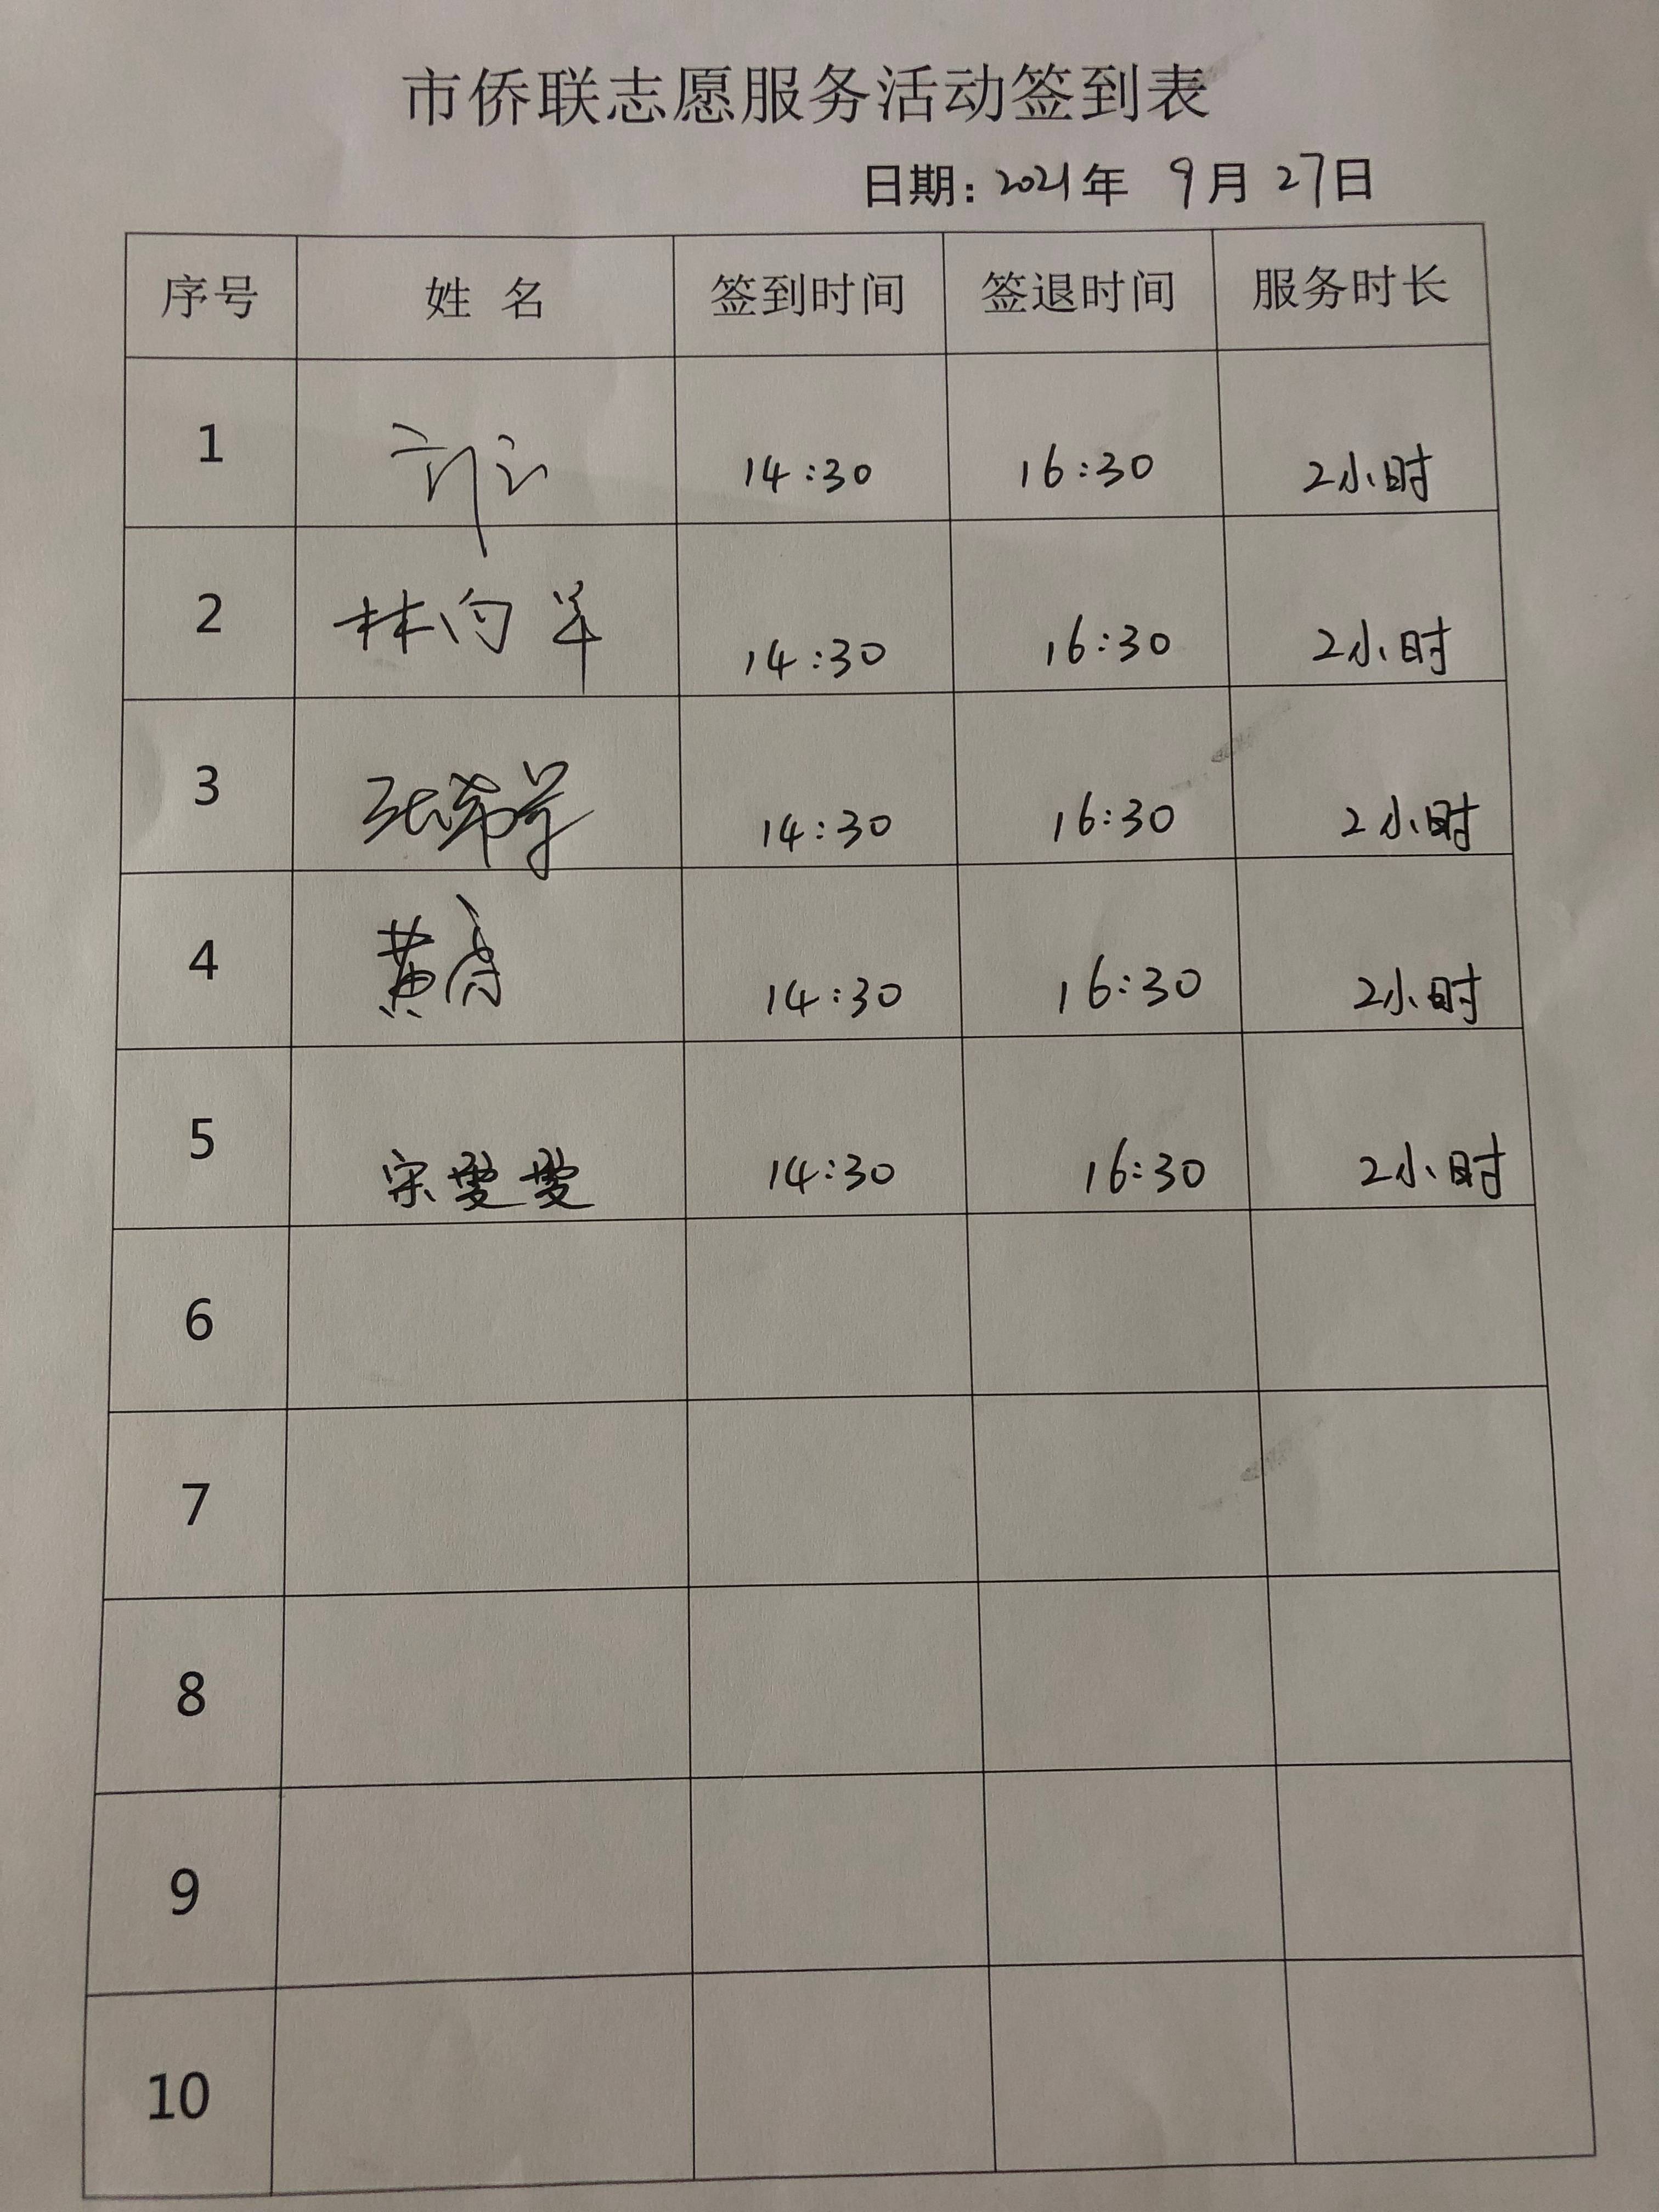 市侨联志愿服务活动签到表
日期: 2021年 9月 27日
序号 姓 名 签到时间 签退时间 服务时长
1 14:30 16:30 2小时
2 林向羊 14:30 16:30 2小时
3 14:30 16:30 2小时
4 14:30 16:30 2小时
5 宋雯雯 14:30 16:30 2小时
6
7
8
9
10